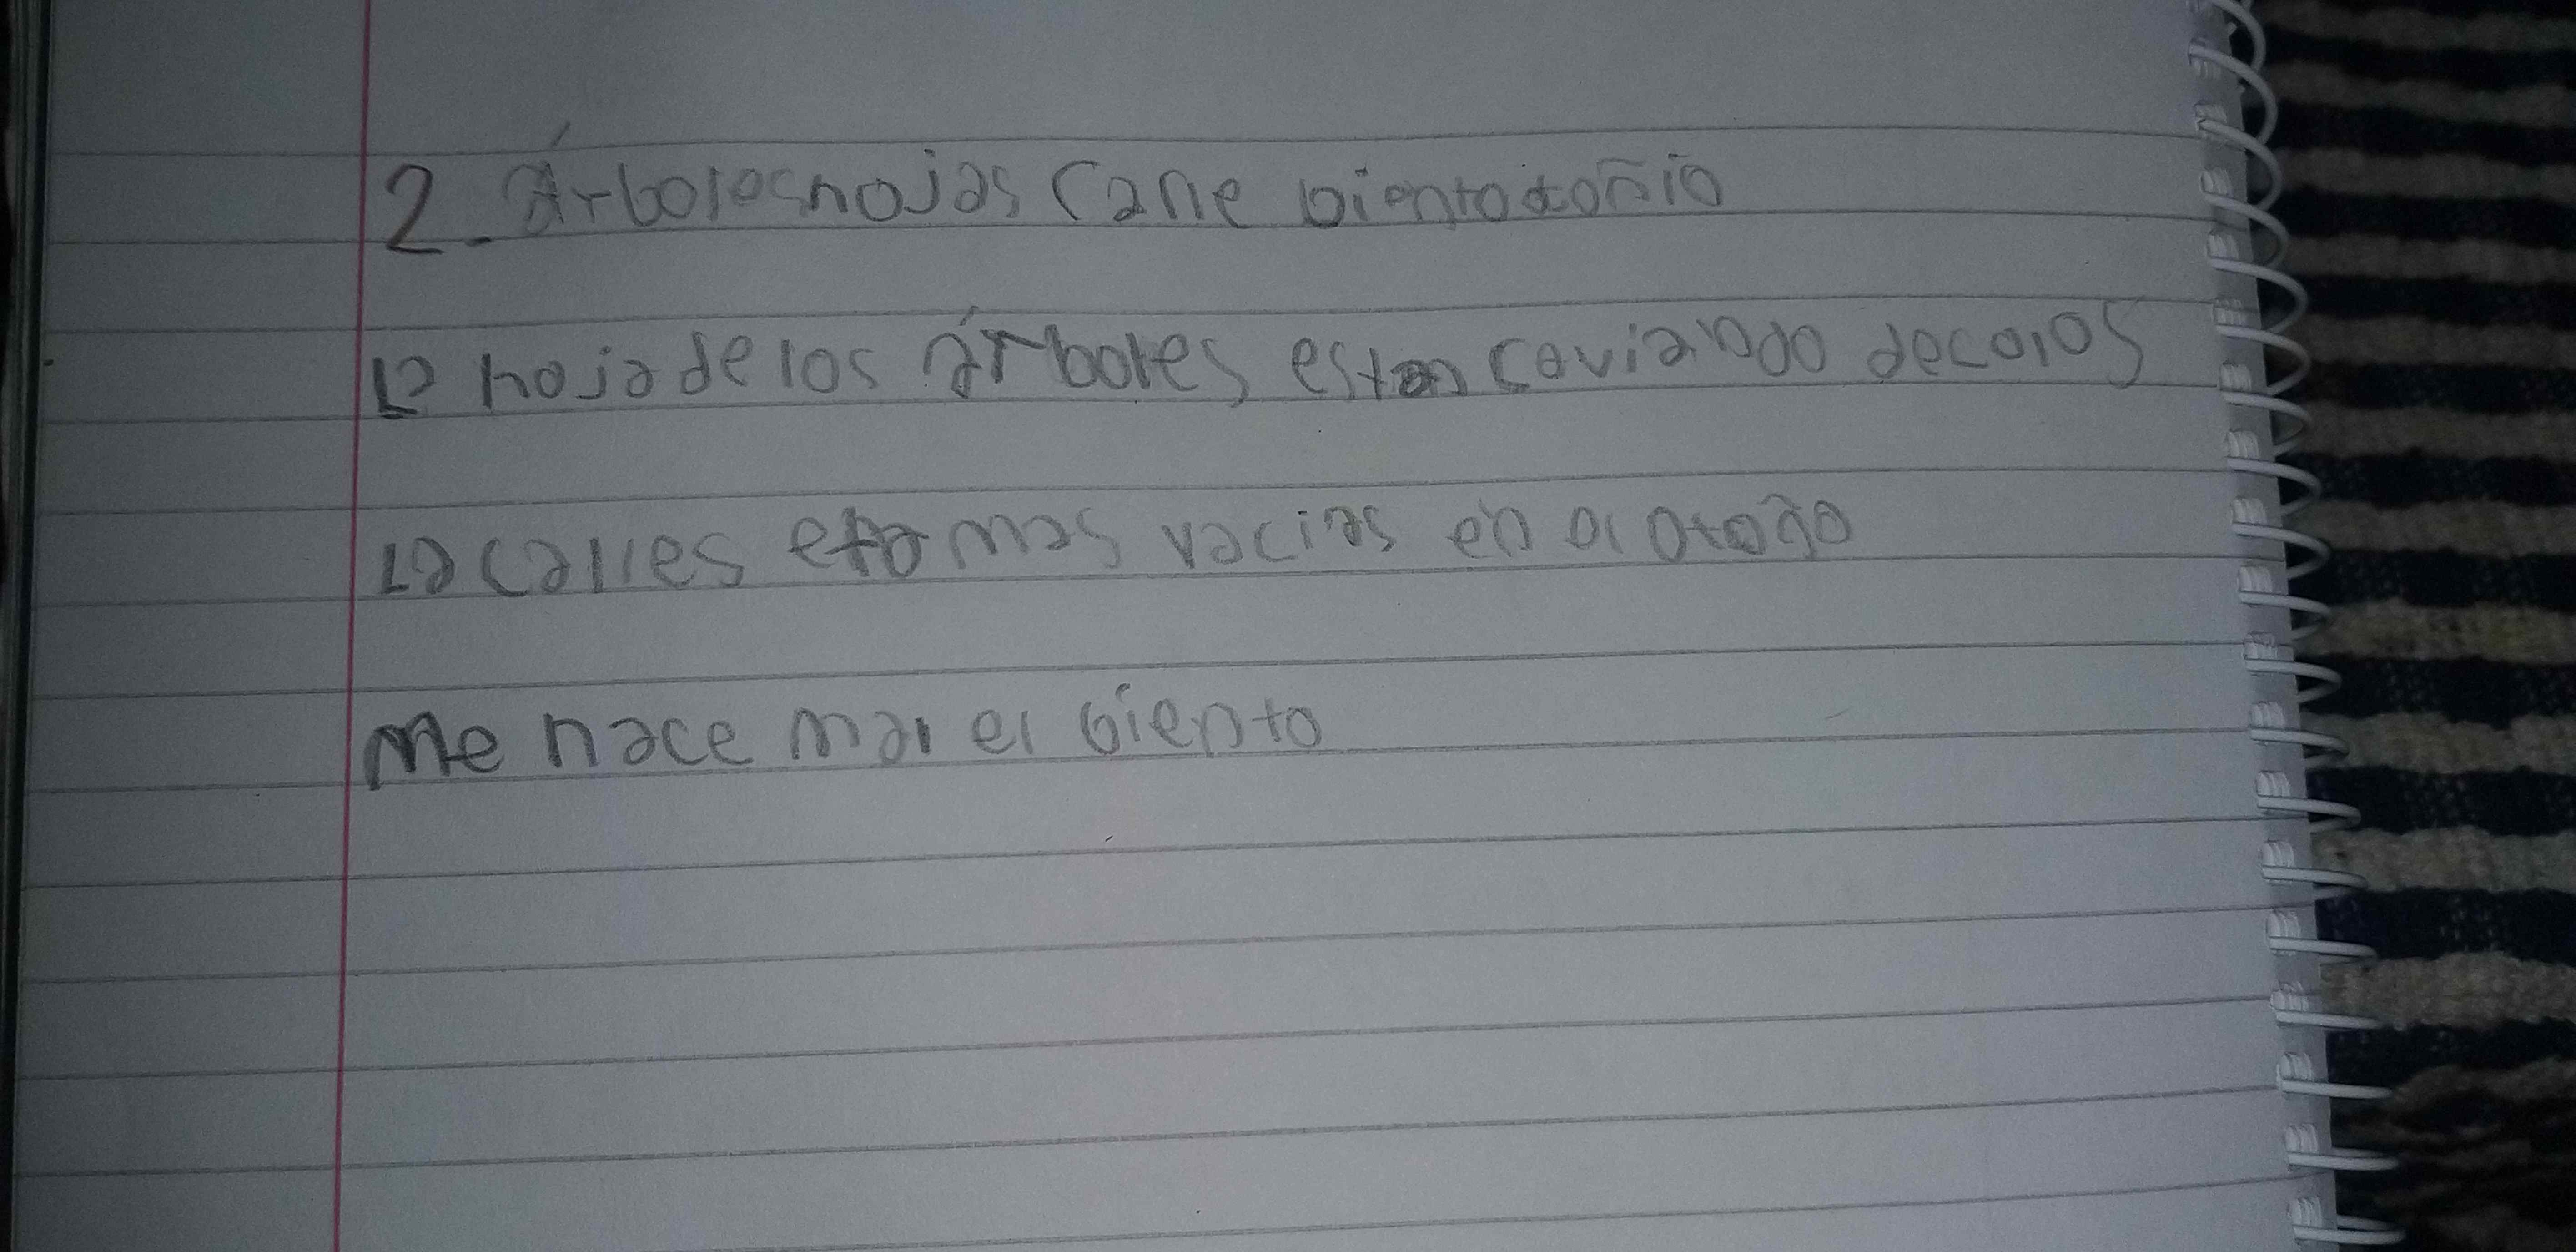 2. Árboleshojas Calle bientootoñio
La hojade los árboles estan caviando decolos
La calles eta mas vacias en el otoño
Me hace mal el biento